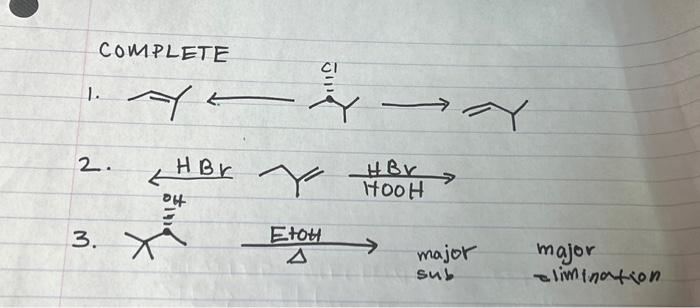 COMPLETE
Cl
1.
2. HBr HBr
HOOH
OH
3. EtOH
Δ
major major
sub elimination